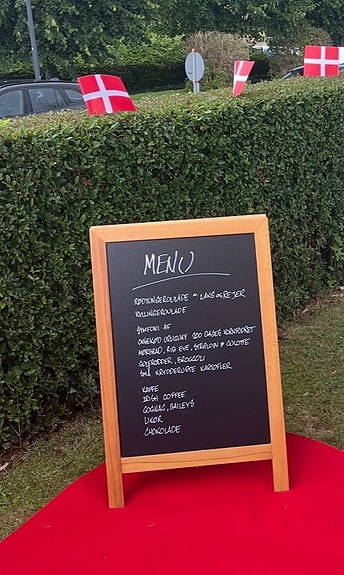 MENU
RØDTUNGEROULADE M LAKS OG REJER
KYLLINGEROULADE
SYMFONI AF
OKSEKØD URUGUAY 200 DAGES KORNFODRET
MØRBRAD, RIB EYE, STRIPLOIN & CULOTTE
GULERØDDER, BROCCOLI
SMÅ KRYDDERURTE KARTOFLER
KAFFE
IRISH COFFEE
COGNAC, BAILEYS
LIKØR
CHOKOLADE